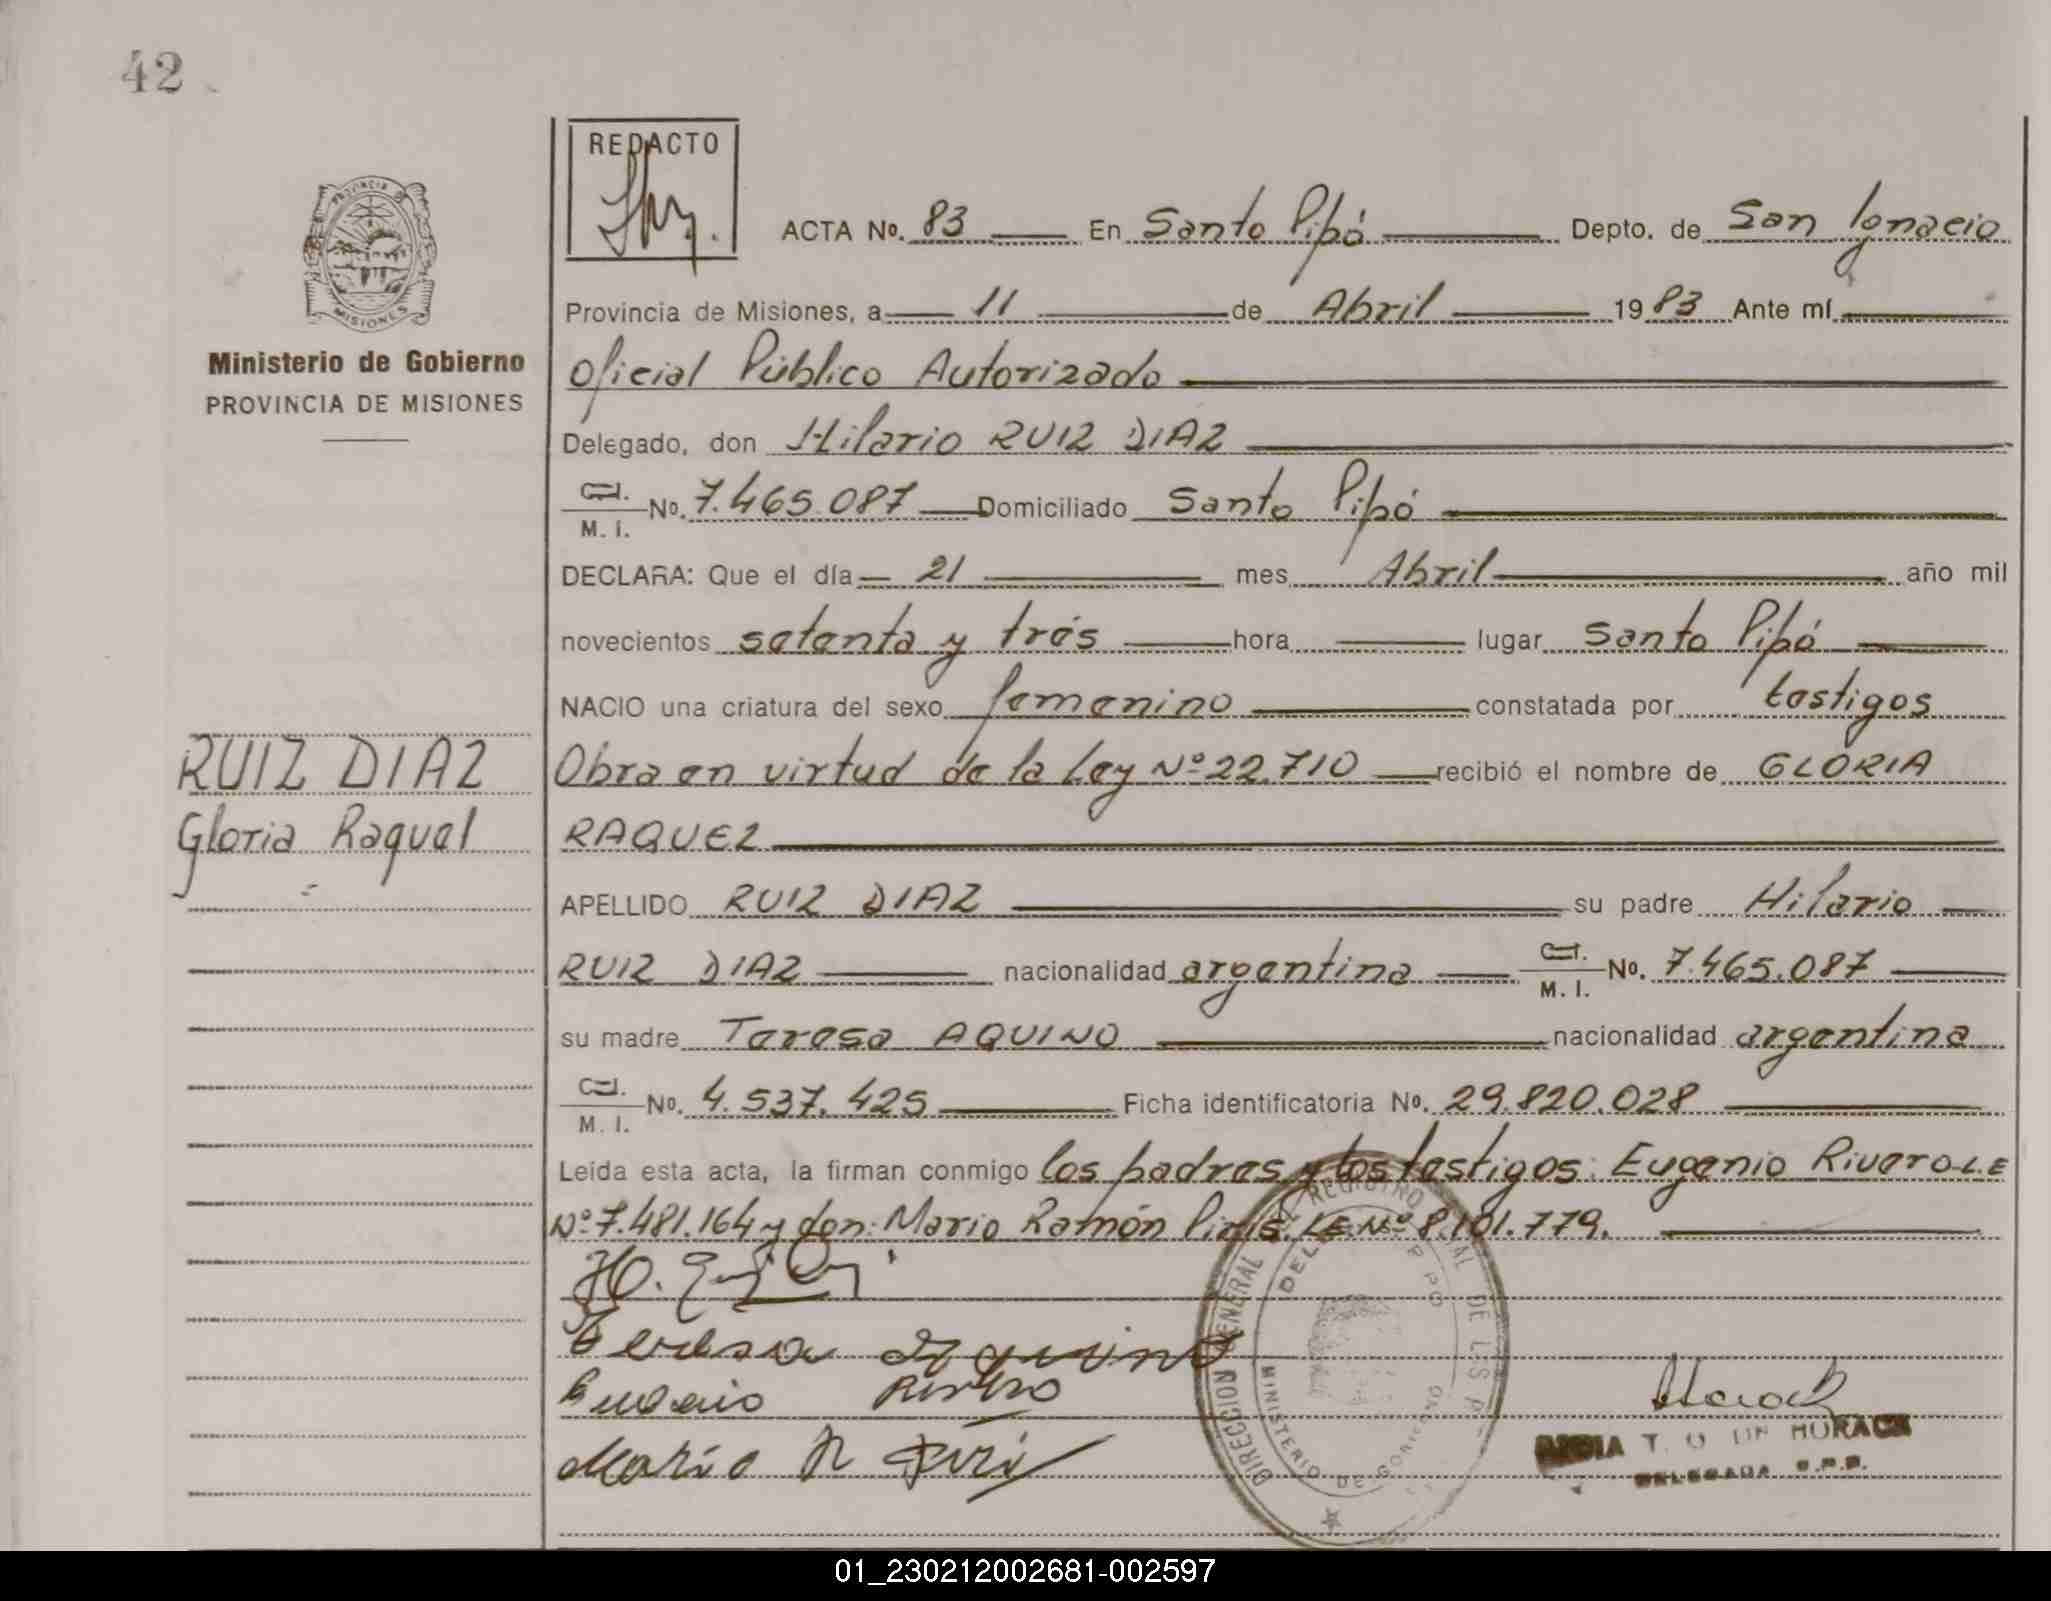 42
REDACTO
ACTA No. 83 En Santo Pipó Depto. de San Ignacio
Provincia de Misiones, a 11 de Abril 1983 Ante mí
Oficial Público Autorizado
Delegado, don Hilario RUIZ DIAZ
C.I. M. I. No. 7.465.087 Domiciliado Santo Pipó
DECLARA: Que el día 21 mes Abril año mil
novecientos setenta y trés hora lugar Santo Pipó
NACIO una criatura del sexo femenino constatada por testigos
Obra en virtud de la Ley Nº 22.710 recibió el nombre de GLORIA
RAQUEL
APELLIDO RUIZ DIAZ su padre Hilario
RUIZ DIAZ nacionalidad argentina C.I. M. I. No. 7.465.087
su madre Teresa AQUINO nacionalidad argentina
C.I. M. I. No. 4.537.425 Ficha identificatoria No. 29.820.028
Leída esta acta, la firman conmigo los padres y los testigos: Eugenio Rivero L.E
Nº 7.481.164 y don: Mario Ramón Piris. LE. Nº 8.101.779.
Teresa aquino
Mario R Piri
PROVINCIA DE
MISIONES
Ministerio de Gobierno
PROVINCIA DE MISIONES
RUIZ DIAZ
Gloria Raquel
DIRECCION GENERAL REGISTRO DE LAS P
MINISTERIO DE GOBIERNO
T. DE HORACK
DELEGADA R.P.P.
01_230212002681-002597